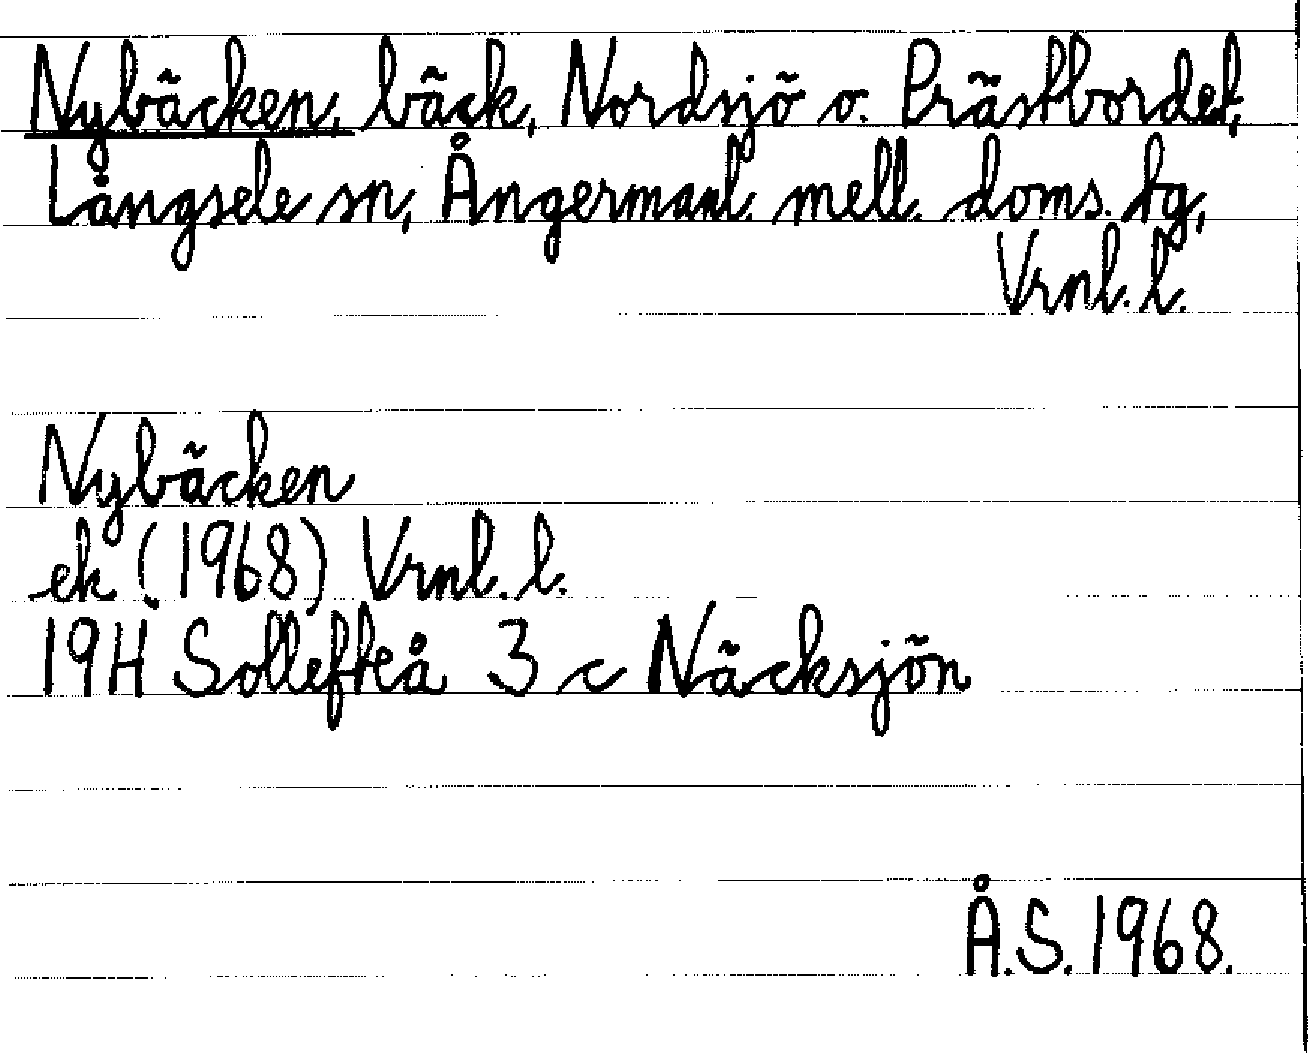 Nybäcken, bäck, Nordsjö o. Prästbordet,
Långsele sn, Ångermanl. mell. doms. tg,
Vrnl. l.
Nybäcken
ek (1968) Vrnl. l.
19H Sollefteå 3 c Näcksjön
Å.S. 1968.